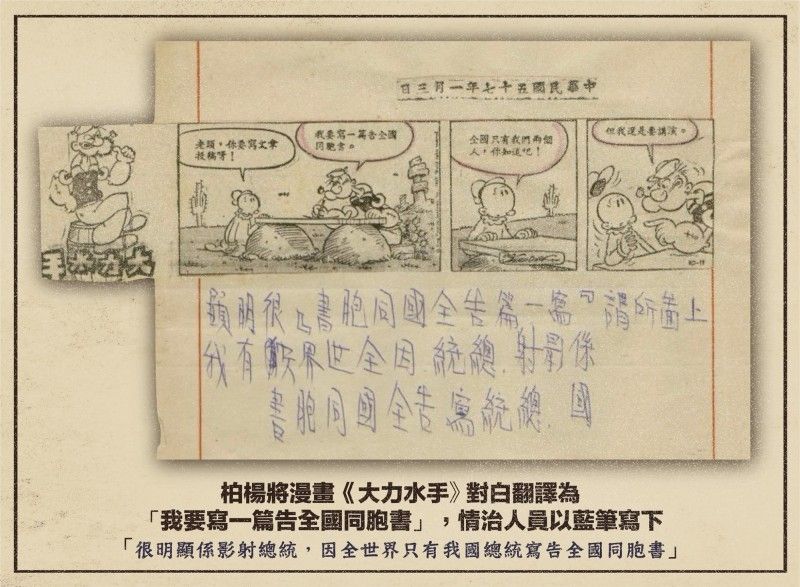 中華民國五十七年一月三日
大力水手
老頭，你要寫文章
投稿呀！
我要寫一篇告全國
同胞書。
全國只有我們兩個
人，你知道吧！
但我還是要講演。
上啚所謂『寫一篇告全國同胞書』很明顯
係影射總統.因全世界只有我
國總統寫告全國同胞書
柏楊將漫畫《大力水手》對白翻譯為
「我要寫一篇告全國同胞書」，情治人員以藍筆寫下
「很明顯係影射總統，因全世界只有我國總統寫告全國同胞書」